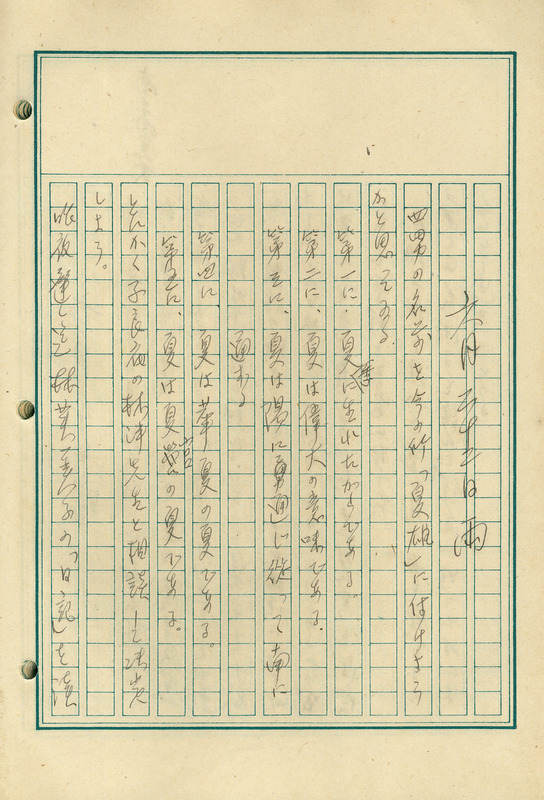 六月二十二日 雨
四男の名前を今の所「夏雄」に付けよう
かと思ってゐる.
第一に、夏に生れたからである
第二に、夏は偉大の意味である.
第三に、夏は陽に 通じ従って南に
通ずる
第四に、夏は華夏の夏である。
第五に、夏は夏 の夏である。
とにかく子良 の林 先生と相談して決定
しよう。
昨夜 林芙美子の「日記」を読